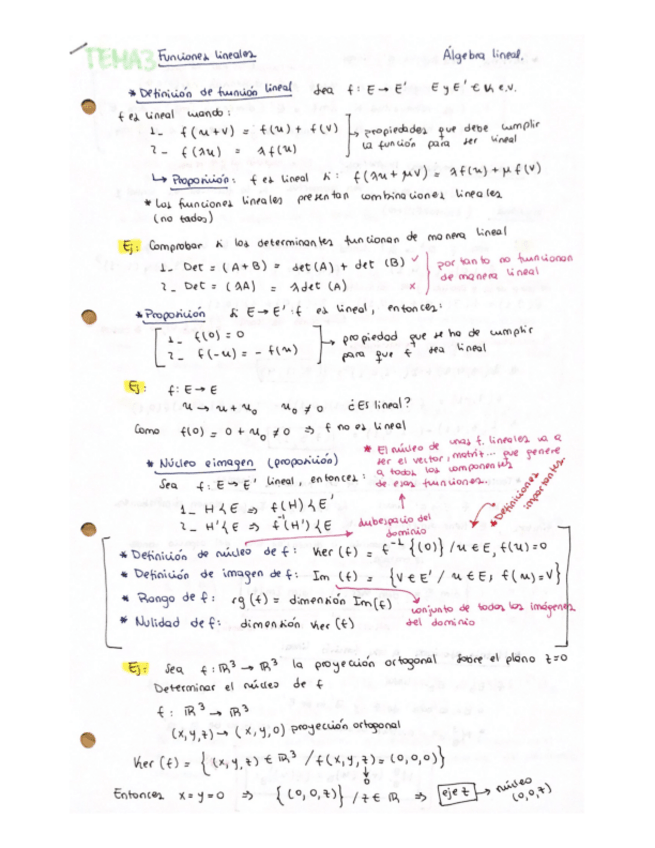 TEMA3 Funciones lineales Álgebra lineal.
* Definición de función lineal Sea f: E → E' E y E' ∈ K e.v.
f es lineal cuando:
1_ f(u+v) = f(u) + f(v)
2_ f(λu) = λf(u)
↳ propiedades que debe cumplir
la función para ser lineal
↳ Proposición: f es lineal si: f(λu + μv) = λf(u) + μf(v)
* Las funciones lineales presentan combinaciones lineales
(no todas)
Ej: Comprobar si los determinantes funcionan de manera lineal
1_ Det = (A+B) = det(A) + det (B) ✓
2_ Det = (λA) = λdet (A) ×
por tanto no funcionan
de manera lineal
* Proposición si E → E' : f es lineal, entonces:
1_ f(0) = 0
2_ f(-u) = - f(u)
↳ propiedad que se ha de cumplir
para que f sea lineal
Ej: f: E → E
u → u + u₀ u₀ ≠ 0 ¿Es lineal?
Como f(0) = 0 + u₀ ≠ 0 ⇒ f no es lineal
* El núcleo de unas f. lineales va a
ser el vector, matriz... que genere
a todos los componentes
de esas funciones.
* Núcleo e imagen (proposición)
Sea f: E → E' lineal, entonces:
1_ H < E ⇒ f(H) < E'
2_ H' < E ⇒ f⁻¹(H') < E
subespacio del
dominio
* Definiciones
importantes
* Definición de núcleo de f: Ker (f) = f⁻¹{(0)} / u ∈ E, f(u) = 0
* Definición de imagen de f: Im (f) = {v ∈ E' / u ∈ E, f(u) = v}
* Rango de f: rg(f) = dimensión Im(f)
* Nulidad de f: dimensión Ker (f)
conjunto de todas las imágenes
del dominio
Ej: Sea f: ℝ³ → ℝ³ la proyección ortogonal sobre el plano z=0
Determinar el núcleo de f
f: ℝ³ → ℝ³
(x,y,z) → (x,y,0) proyección ortogonal
Ker (f) = {(x,y,z) ∈ ℝ³ / f(x,y,z) = (0,0,0)}
↓
0
Entonces x=y=0 ⇒ {(0,0,z)} / z ∈ ℝ ⇒ eje z → núcleo
(0,0,z)